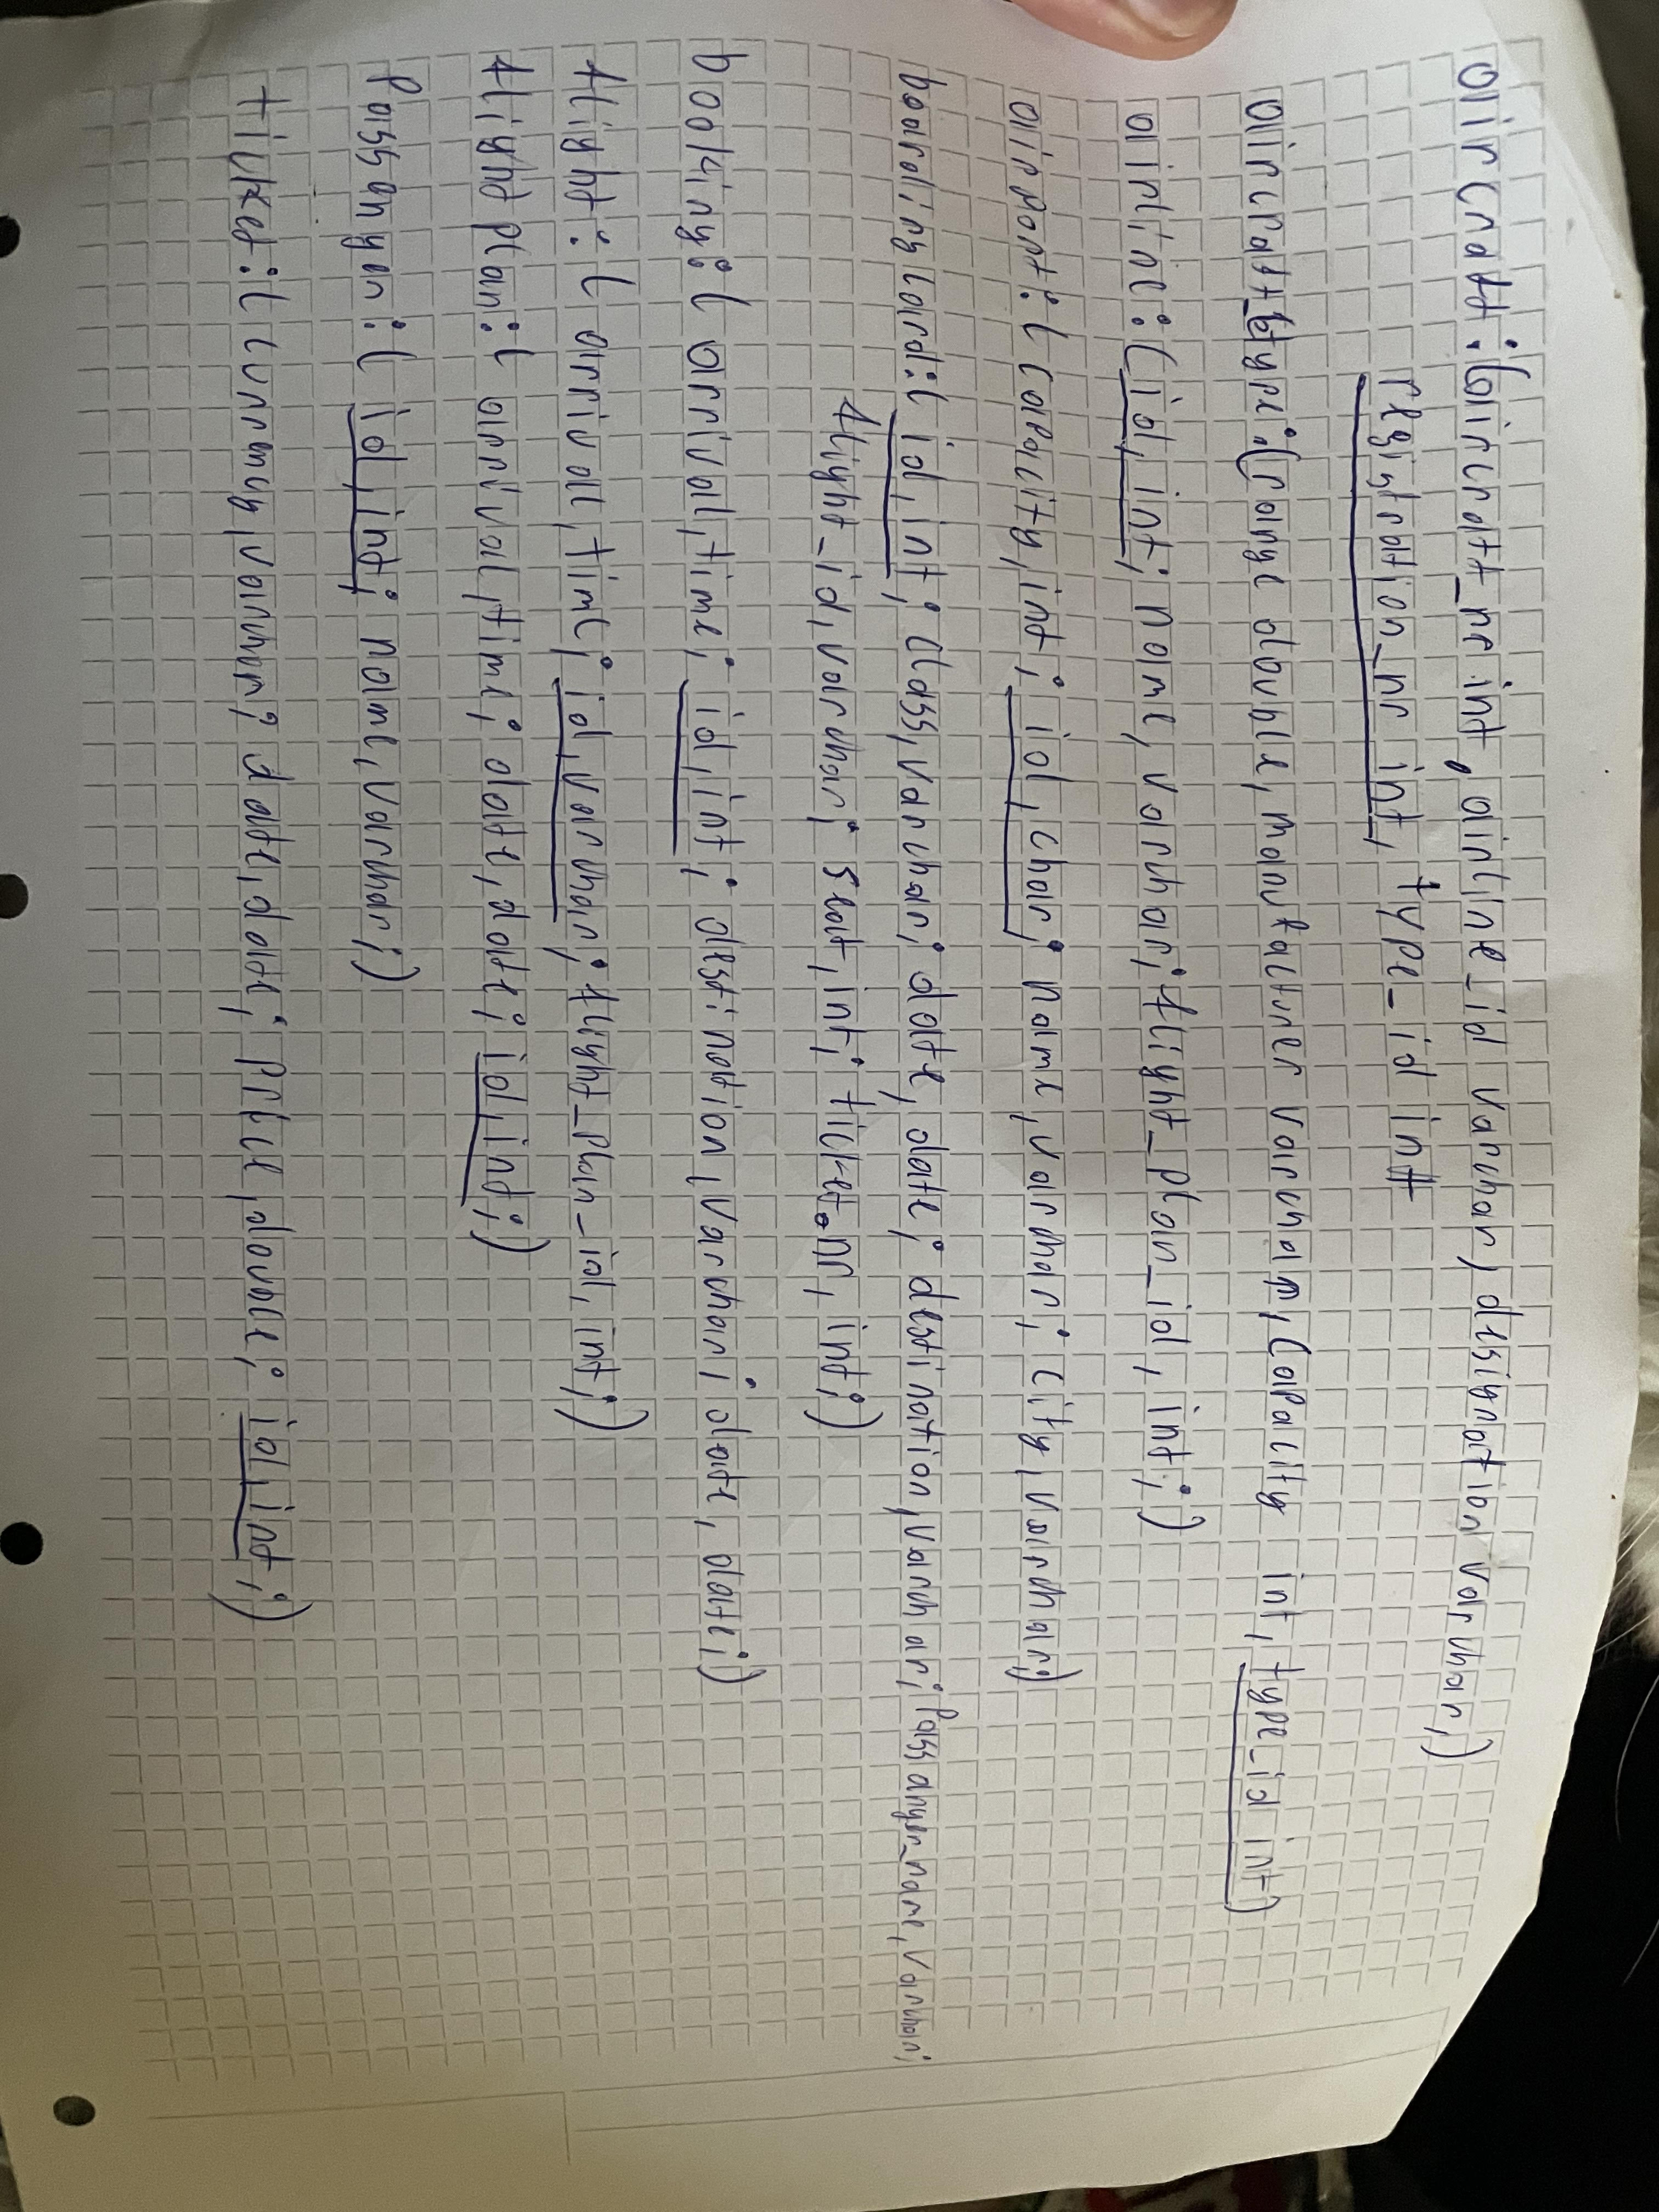 aircraft:(aircraft_nr int, airline_id varchar, designation varchar,)
registration_nr int, type_id int
aircraft_type:(range double, manufacturer varchar, capacity int, type_id int)
airline:(id, int; name, varchar; flight_plan_id, int;)
airport:(capacity, int; id, char; name, varchar; city, varchar;)
boardingcard:(id, int; class, varchar; date, date; destination, varchar; passanger_name, varchar;
flight_id, varchar; seat, int; ticket_nr, int;)
booking:(arrival, time; id, int; destination, varchar; date, date;)
flight:(arrival, time; id, varchar; flight_plan_id, int;)
flightplan:(arrival, time; date, date; id, int;)
Passanger:(id, int; name, varchar;)
ticket:(currency, varchar; date, date; price, double; id, int;)